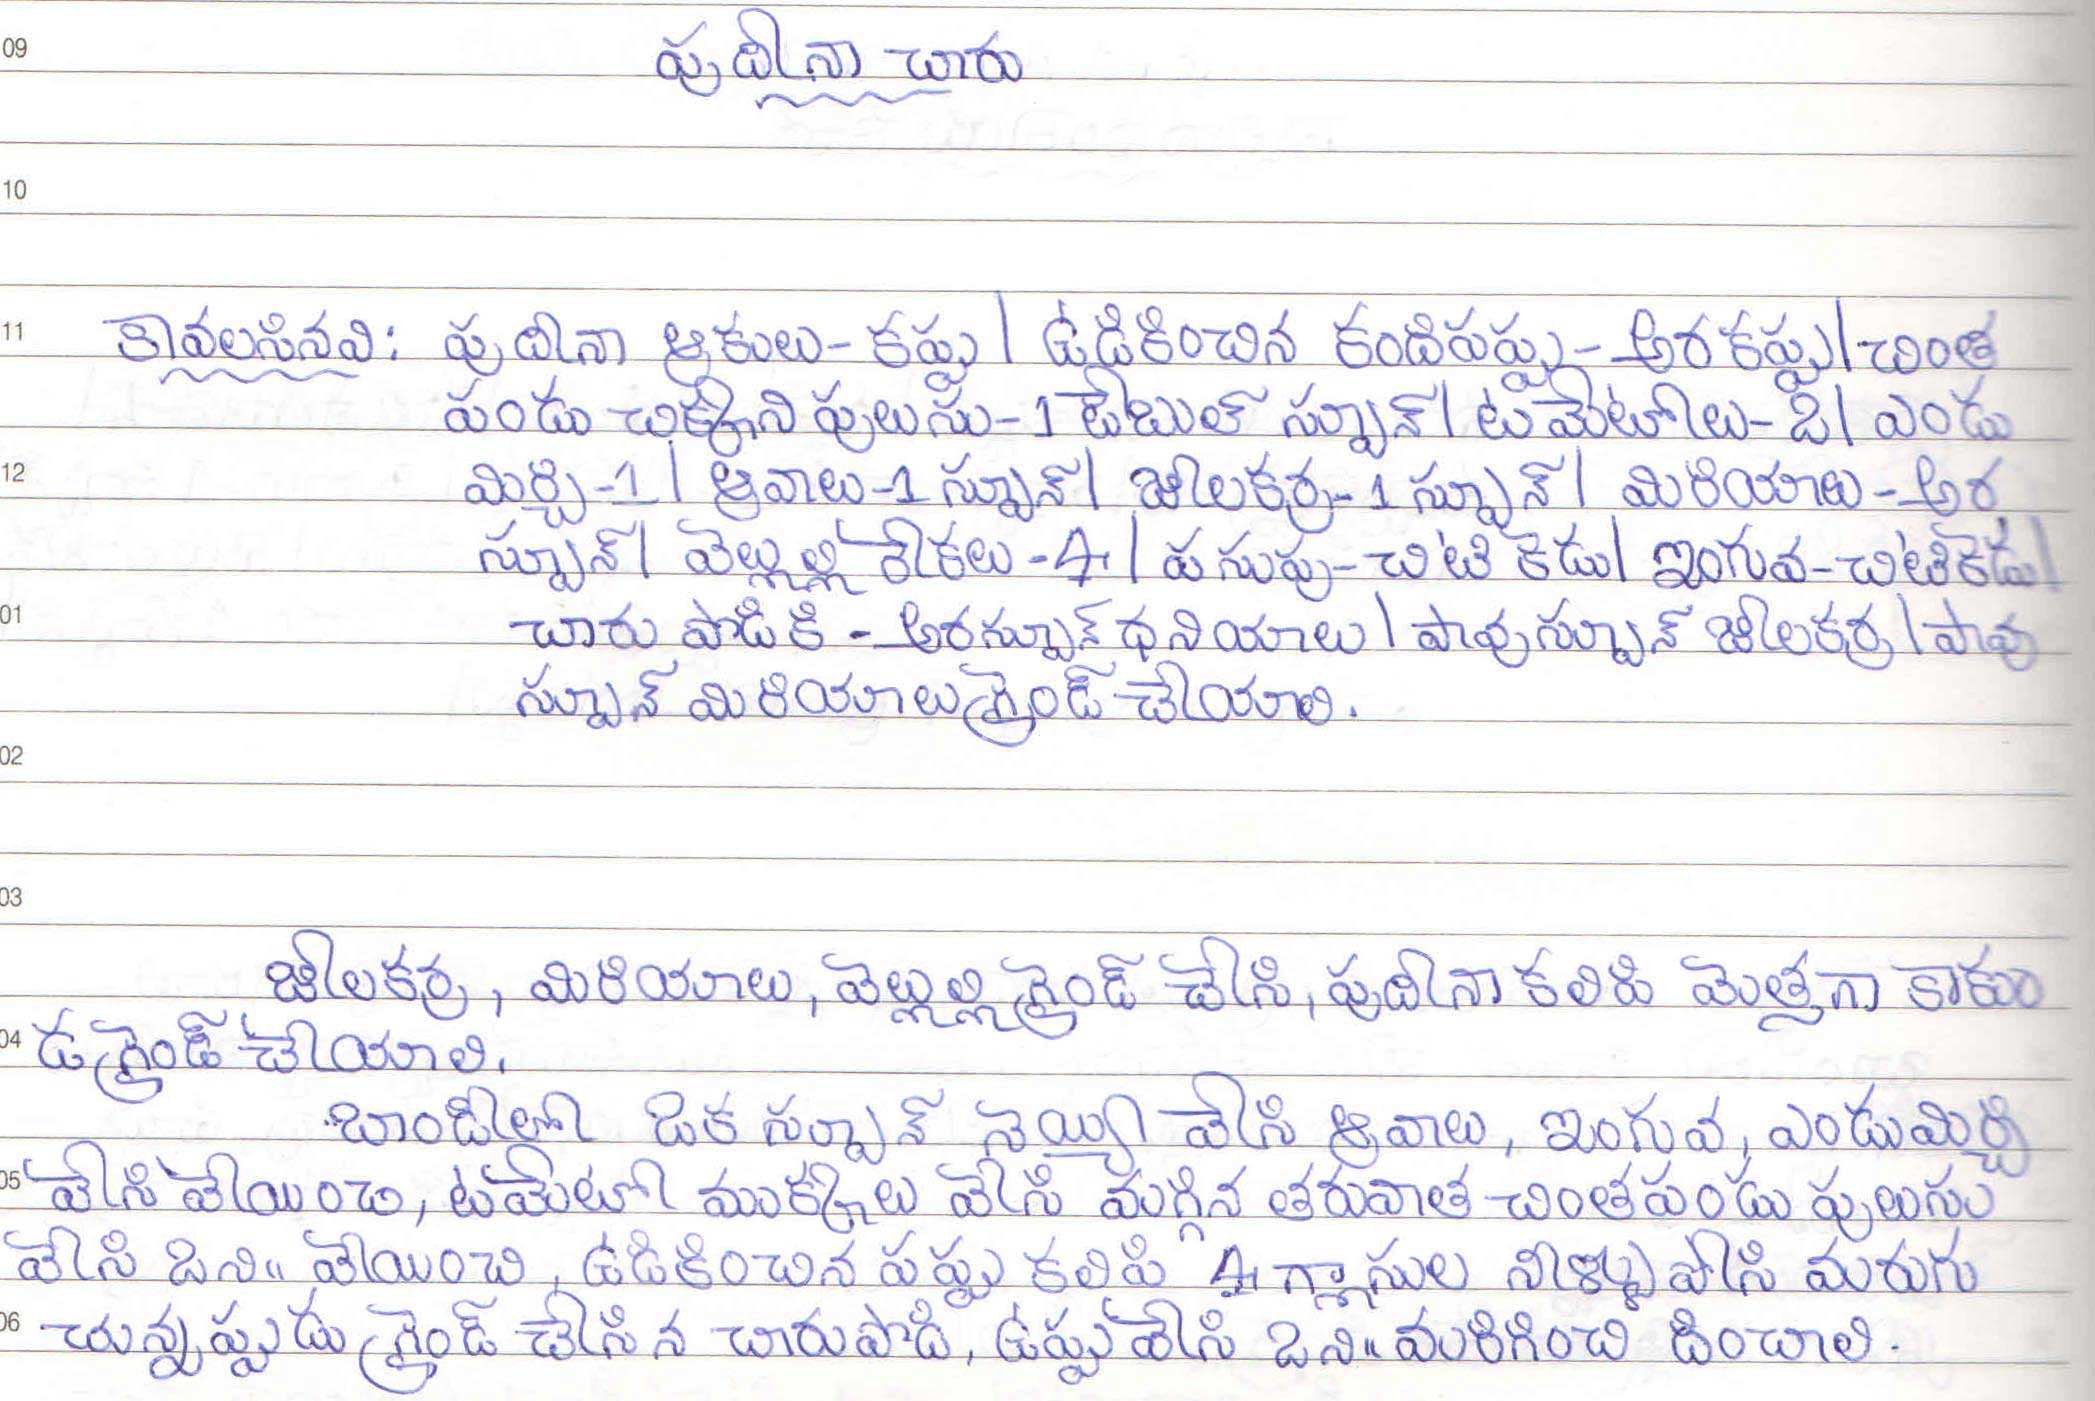 09
పుదీనా చారు
10
11 కావలసినవి: పుదీనా ఆకులు-కప్పు/ ఉడికించిన కందిపప్పు-అరకప్పు/చింత
పండు చిక్కని పులుసు-1టేబుల్ స్పూన్/ టమేటోలు-2/ ఎండు
12 మిర్చి-1/ ఆవాలు-1 స్పూన్/ జీలకర్ర-1 స్పూన్/ మిరియాలు-అర
స్పూన్/ వెల్లుల్లి రేకలు-4/ పసుపు-చిటికెడు/ ఇంగువ-చిటికెడు/
01 చారు పొడికి - అరస్పూన్ ధనియాలు/ పావుస్పూన్ జీలకర్ర/పావు
స్పూన్ మిరియాలు గ్రైండ్ చేయాలి.
02
03
జీలకర్ర, మిరియాలు, వెల్లుల్లి గ్రైండ్ చేసి, పుదీనా కలిపి మెత్తగా కాకుం
04 డ గ్రైండ్ చేయాలి.
బాండీలో ఒక స్పూన్ నెయ్యి వేసి ఆవాలు, ఇంగువ, ఎండుమిర్చి
05 వేసి వేయించి, టమేటో ముక్కలు వేసి మగ్గిన తరువాత చింతపండు పులుసు
వేసి 2ని॥ వేయించి, ఉడికించిన పప్పు కలిపి 4 గ్లాసుల నీళ్ళు పోసి మరుగు
06 చున్నప్పుడు గ్రైండ్ చేసిన చారుపొడి, ఉప్పు వేసి 2ని॥ మరిగించి దించాలి.